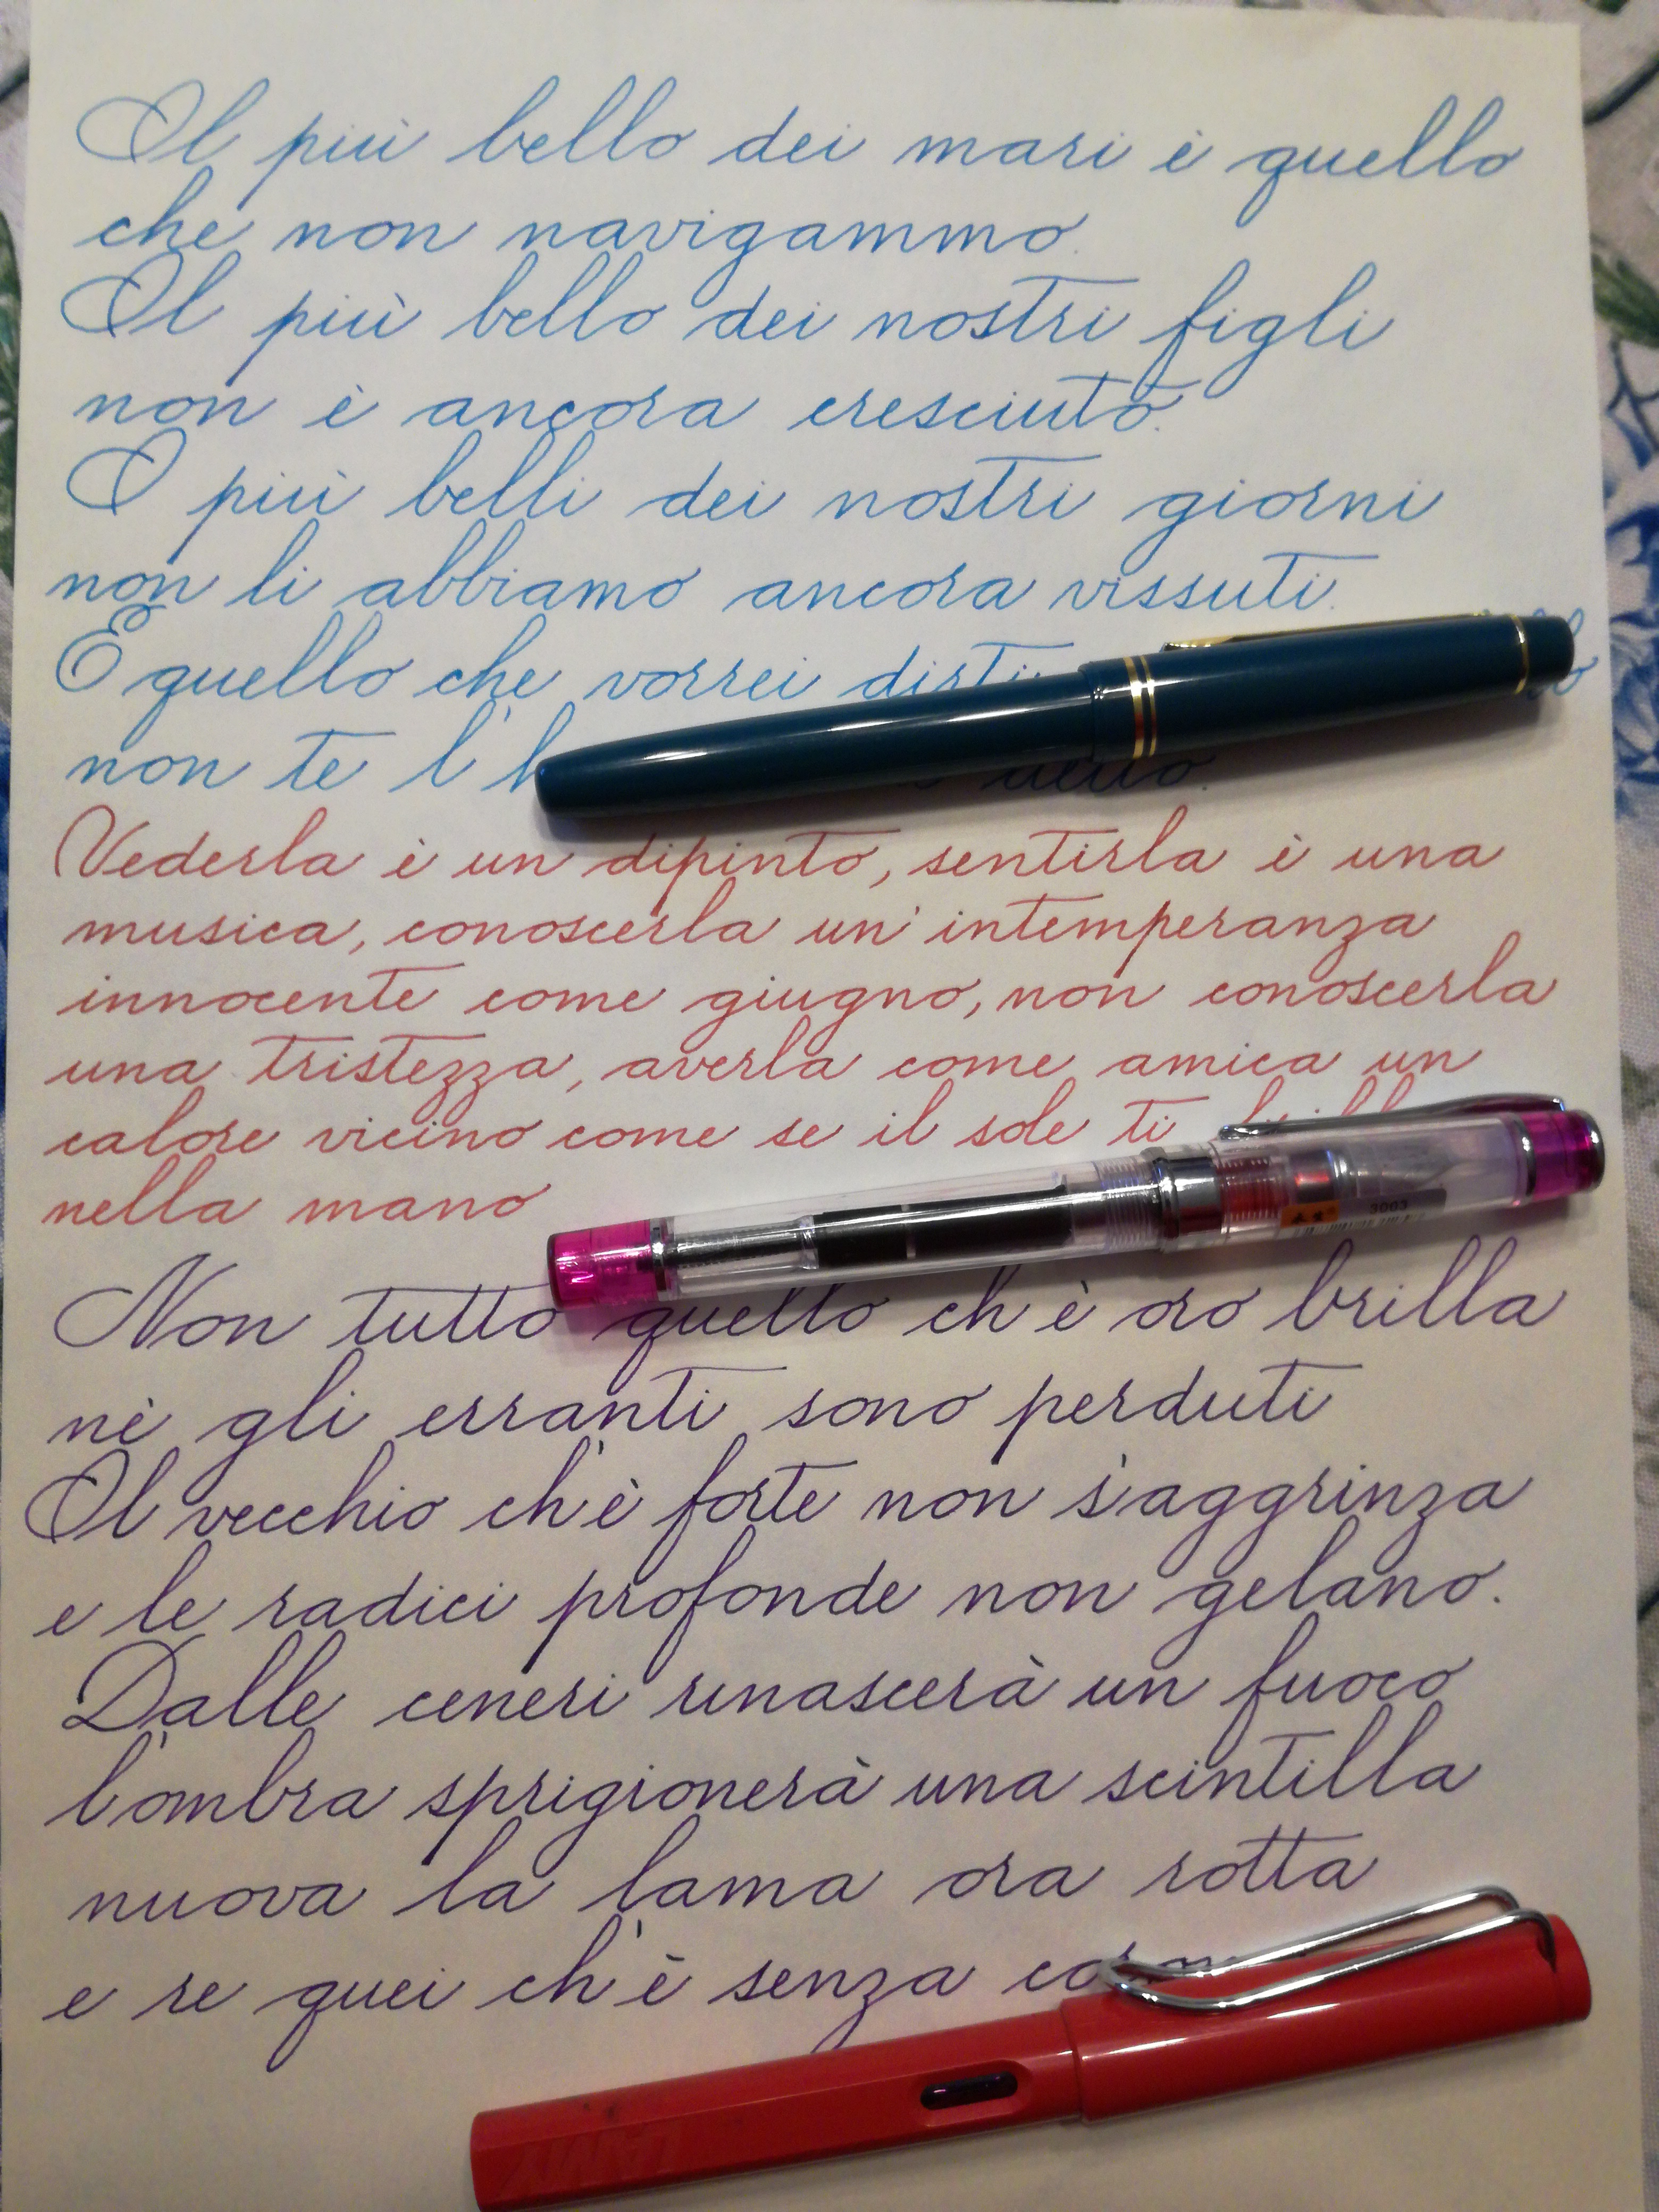 Il più bello dei mari è quello
che non navigammo.
Il più bello dei nostri figli
non è ancora cresciuto.
I più belli dei nostri giorni
non li abbiamo ancora vissuti.
E quello che vorrei dirti
non te l'
Vederla è un dipinto, sentirla è una
musica, conoscerla un'intemperanza
innocente come giugno, non conoscerla
una tristezza, averla come amica un
calore vicino come se il sole ti
nella mano
3003
Non tutto quello ch'è oro brilla
nè gli erranti sono perduti
Il vecchio ch'è forte non s'aggrinza
e le radici profonde non gelano.
Dalle ceneri rinascerà un fuoco
l'ombra sprigionerà una scintilla
nuova la lama ora rotta
e re quei ch'è senza
LAMY